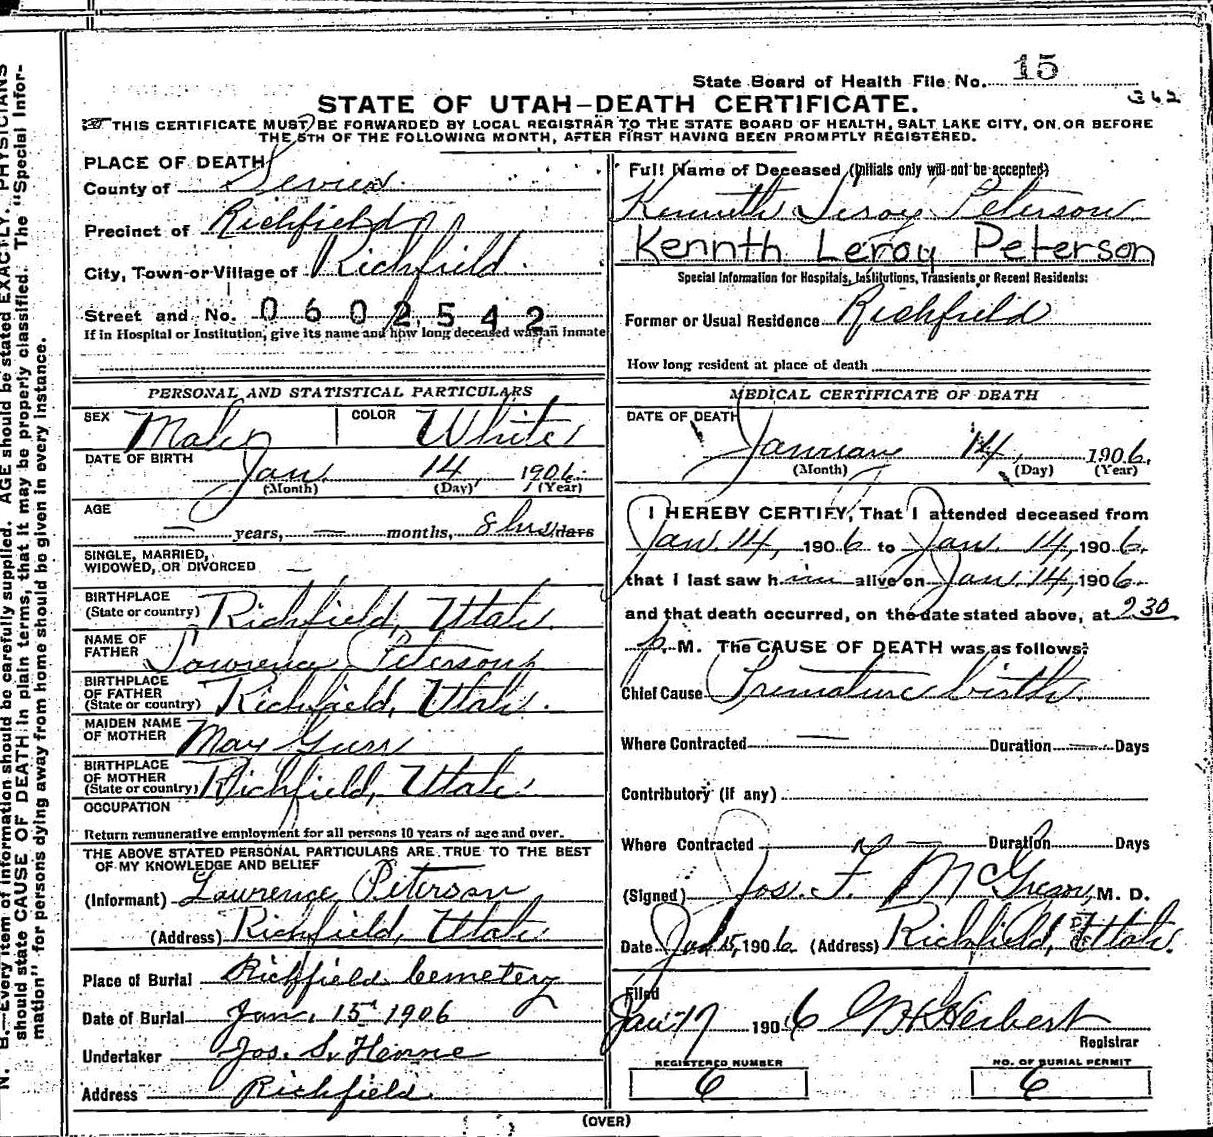 State Board of Health File No. 15
362
STATE OF UTAH—DEATH CERTIFICATE.
THIS CERTIFICATE MUST BE FORWARDED BY LOCAL REGISTRAR TO THE STATE BOARD OF HEALTH, SALT LAKE CITY, ON OR BEFORE
THE 5TH OF THE FOLLOWING MONTH, AFTER FIRST HAVING BEEN PROMPTLY REGISTERED.
PLACE OF DEATH
County of Sevier
Precinct of Richfield
City, Town or Village of Richfield
Street and No. 0602542
If in Hospital or Institution, give its name and how long deceased was an inmate
PERSONAL AND STATISTICAL PARTICULARS
SEX Male COLOR White
DATE OF BIRTH Jan. 14 1906
(Month) (Day) (Year)
AGE
— years, — months, 8 hrs days
SINGLE, MARRIED,
WIDOWED, OR DIVORCED —
BIRTHPLACE
(State or country) Richfield, Utah
NAME OF
FATHER Lawrence Peterson
BIRTHPLACE
OF FATHER
(State or country) Richfield, Utah.
MAIDEN NAME
OF MOTHER May Gurr
BIRTHPLACE
OF MOTHER
(State or country) Richfield, Utah
OCCUPATION
Return remunerative employment for all persons 10 years of age and over.
THE ABOVE STATED PERSONAL PARTICULARS ARE TRUE TO THE BEST
OF MY KNOWLEDGE AND BELIEF
(Informant) Lawrence Peterson
(Address) Richfield, Utah
Place of Burial Richfield Cemetery
Date of Burial Jan. 15th 1906
Undertaker Jos. S. Horne
Address Richfield
Full Name of Deceased (Initials only will not be accepted)
Kenneth Leroy Peterson
Kennth Leroy Peterson
Special Information for Hospitals, Institutions, Transients or Recent Residents:
Former or Usual Residence Richfield
How long resident at place of death
MEDICAL CERTIFICATE OF DEATH
DATE OF DEATH
January 14, 1906.
(Month) (Day) (Year)
I HEREBY CERTIFY, That I attended deceased from
Jan. 14, 1906 to Jan. 14, 1906.
that I last saw him alive on Jan. 14, 1906.
and that death occurred, on the date stated above, at 230
p. M. The CAUSE OF DEATH was as follows:
Chief Cause Premature birth
Where Contracted — Duration — Days
Contributory (if any)
Where Contracted — Duration Days
(Signed) Jos. F. McGregor, M. D.
Date Jan 15, 1906 (Address) Richfield, Utah.
Filed
Jan 17 1906 Herbert
Registrar
REGISTERED NUMBER NO. OF BURIAL PERMIT
6 6
(OVER)
N. B.—Every item of information should be carefully supplied. AGE should be stated EXACTLY. PHYSICIANS
should state CAUSE OF DEATH in plain terms, that it may be properly classified. The "Special Infor-
mation" for persons dying away from home should be given in every instance.